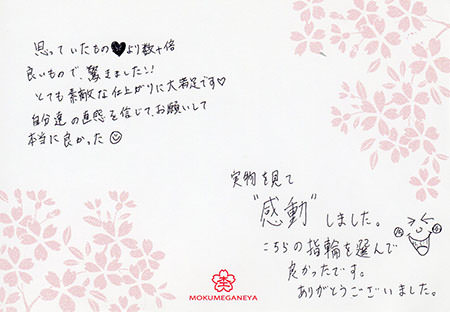 思っていたもの♥より数十倍
良いもので、驚きました!!
とても素敵な仕上がりに大満足です♡
自分達の直感を信じて、お願いして
本当に良かった☺
実物を見て
"感動"しました。
こちらの指輪を選んで
良かったです。
ありがとうございました。
MOKUMEGANEYA